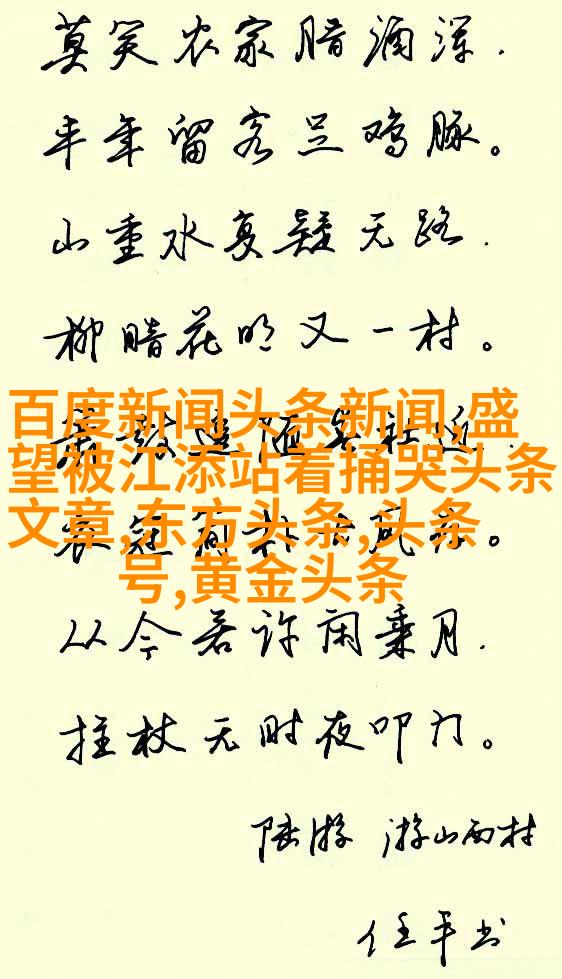 莫笑农家腊酒浑.
丰年留客足鸡豚。
山重水复疑无路.
柳暗花明又一村。
百度新闻头条新闻,盛
望被江添站着捅哭头条
文章,东方头条,头条
号,黄金头条
箫鼓追随春社近.
衣冠简朴古风存。
从今若许闲乘月.
拄杖无时夜叩门。
陆游 游山西村
任平书